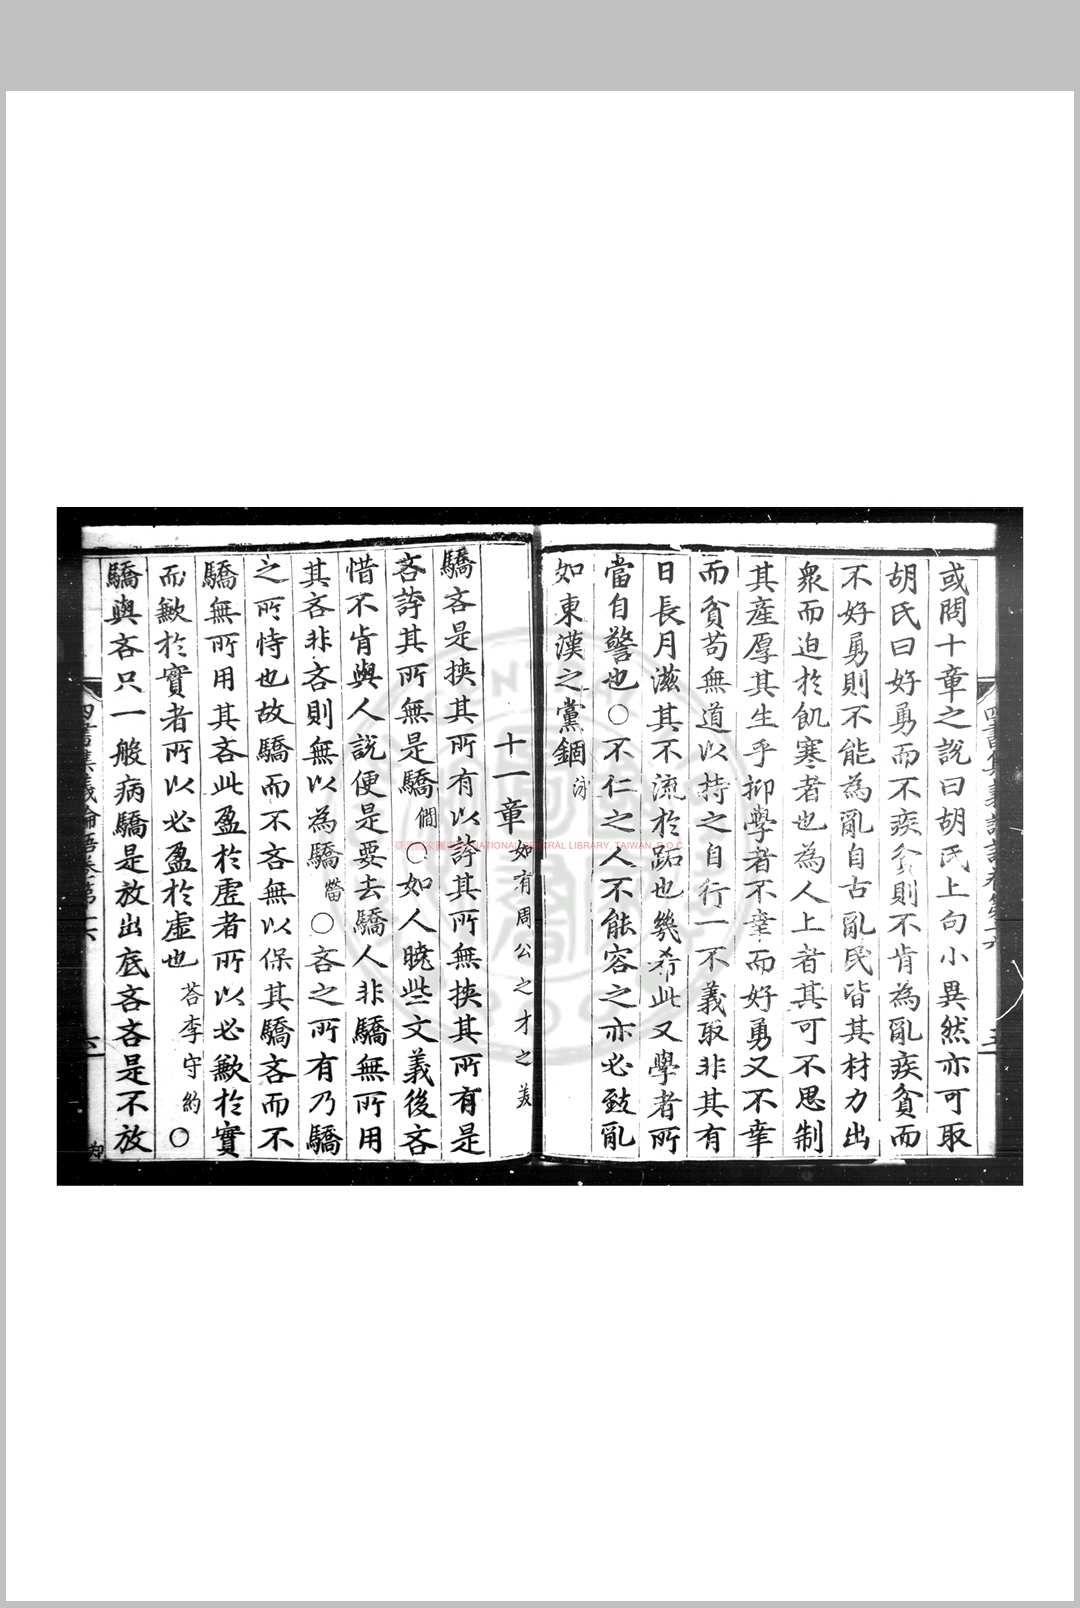 或問十章之說曰胡氏上句小異然亦可取
胡氏曰好勇而不疾貧則不肯為亂疾貧而
不好勇則不能為亂自古亂民皆其材力出
衆而迫於飢寒者也為人上者其可不思制
其產厚其生乎抑學者不幸而好勇又不幸
而貧苟無道以持之自行一不義取非其有
日長月滋其不流於跖也幾希此又學者所
當自警也○不仁之人不能容之亦必致亂
如東漢之黨錮泳
十一章如有周公之才之羙
驕吝是挾其所有以誇其所無挾其所有是
吝誇其所無是驕僩○如人曉些文義後吝
惜不肯與人說便是要去驕人非驕無所用
其吝非吝則無以為驕㽦○吝之所有乃驕
之所恃也故驕而不吝無以保其驕吝而不
驕無所用其吝此盈於虛者所以必歉於實
而歉於實者所以必盈於虛也荅李守約○
驕與吝只一般病驕是放出底吝吝是不放
四書集義論語卷第六
六